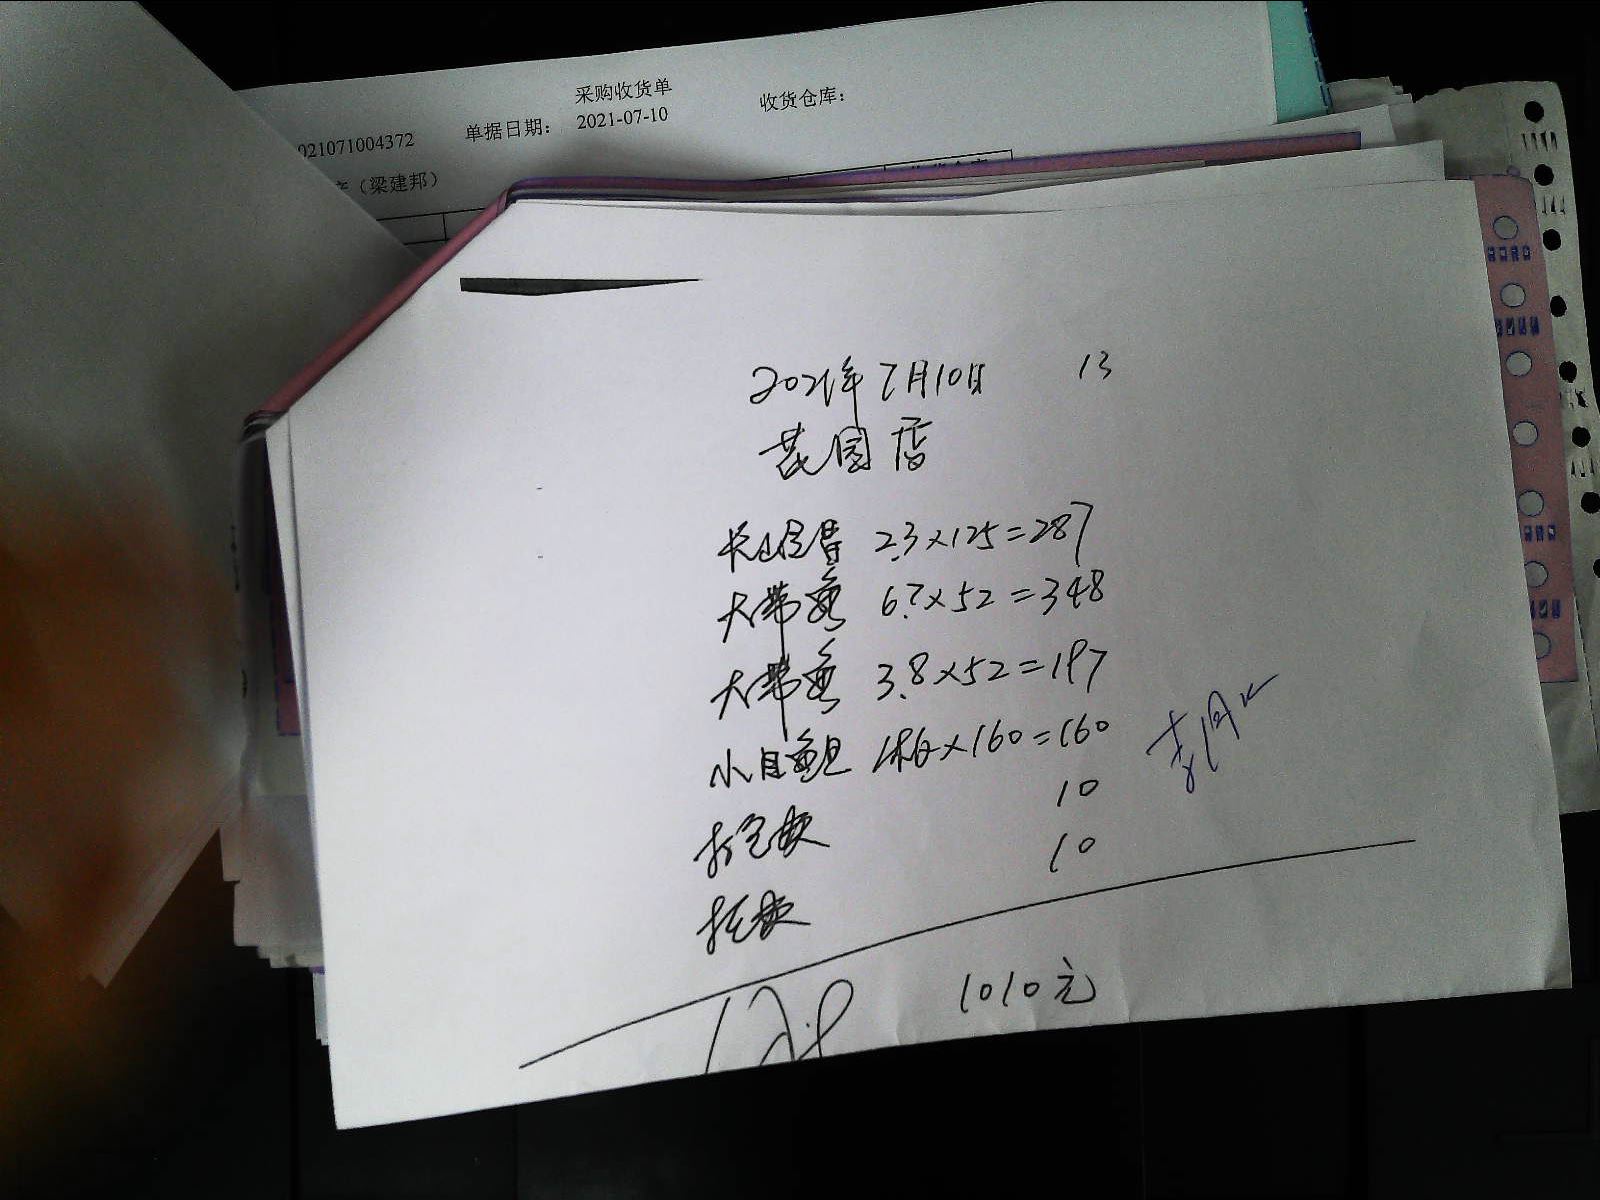 采购收货单
021071004372 单据日期： 2021-07-10 收货仓库：
（梁建邦）
2021年7月10日 13
花园店
2.3×125=287
大带鱼 6.7×52=348
大带鱼 3.8×52=197
小目 ×160=160
打包费 10
10
1010元